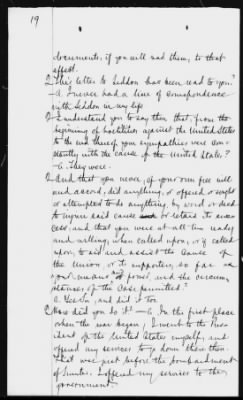 19
documents, if you will read them, to that
effect.
Q. This letter to Seddon has been read to you?
A. I never had a line of correspondence
with Seddon in my life
Q. I understand you to say then that, from the
beginning of hostilities against the United States
to the end thereof, your sympathies were con-
stantly with the cause of the United States?
A. They were.
Q. And that you never, of your own free will
and accord, did anything, or offered or sought
or attempted to do anything, by word or deed
to injure said cause or retard its suc-
cess, and that you were at all times ready
and willing, when called upon, or if called
upon, to aid and assist the cause of
the Union, or its supporters, so far as
your means and power, and the circum-
stances of the case permitted?
A. Yes Sir, and did it too
Q. How did you do it? — A. In the first place
when the war began, I went to the Pres-
ident of the United States myself, and
offered my services to down them then
That was just before the bombardment
of Sumter. I offered my services to the
government.